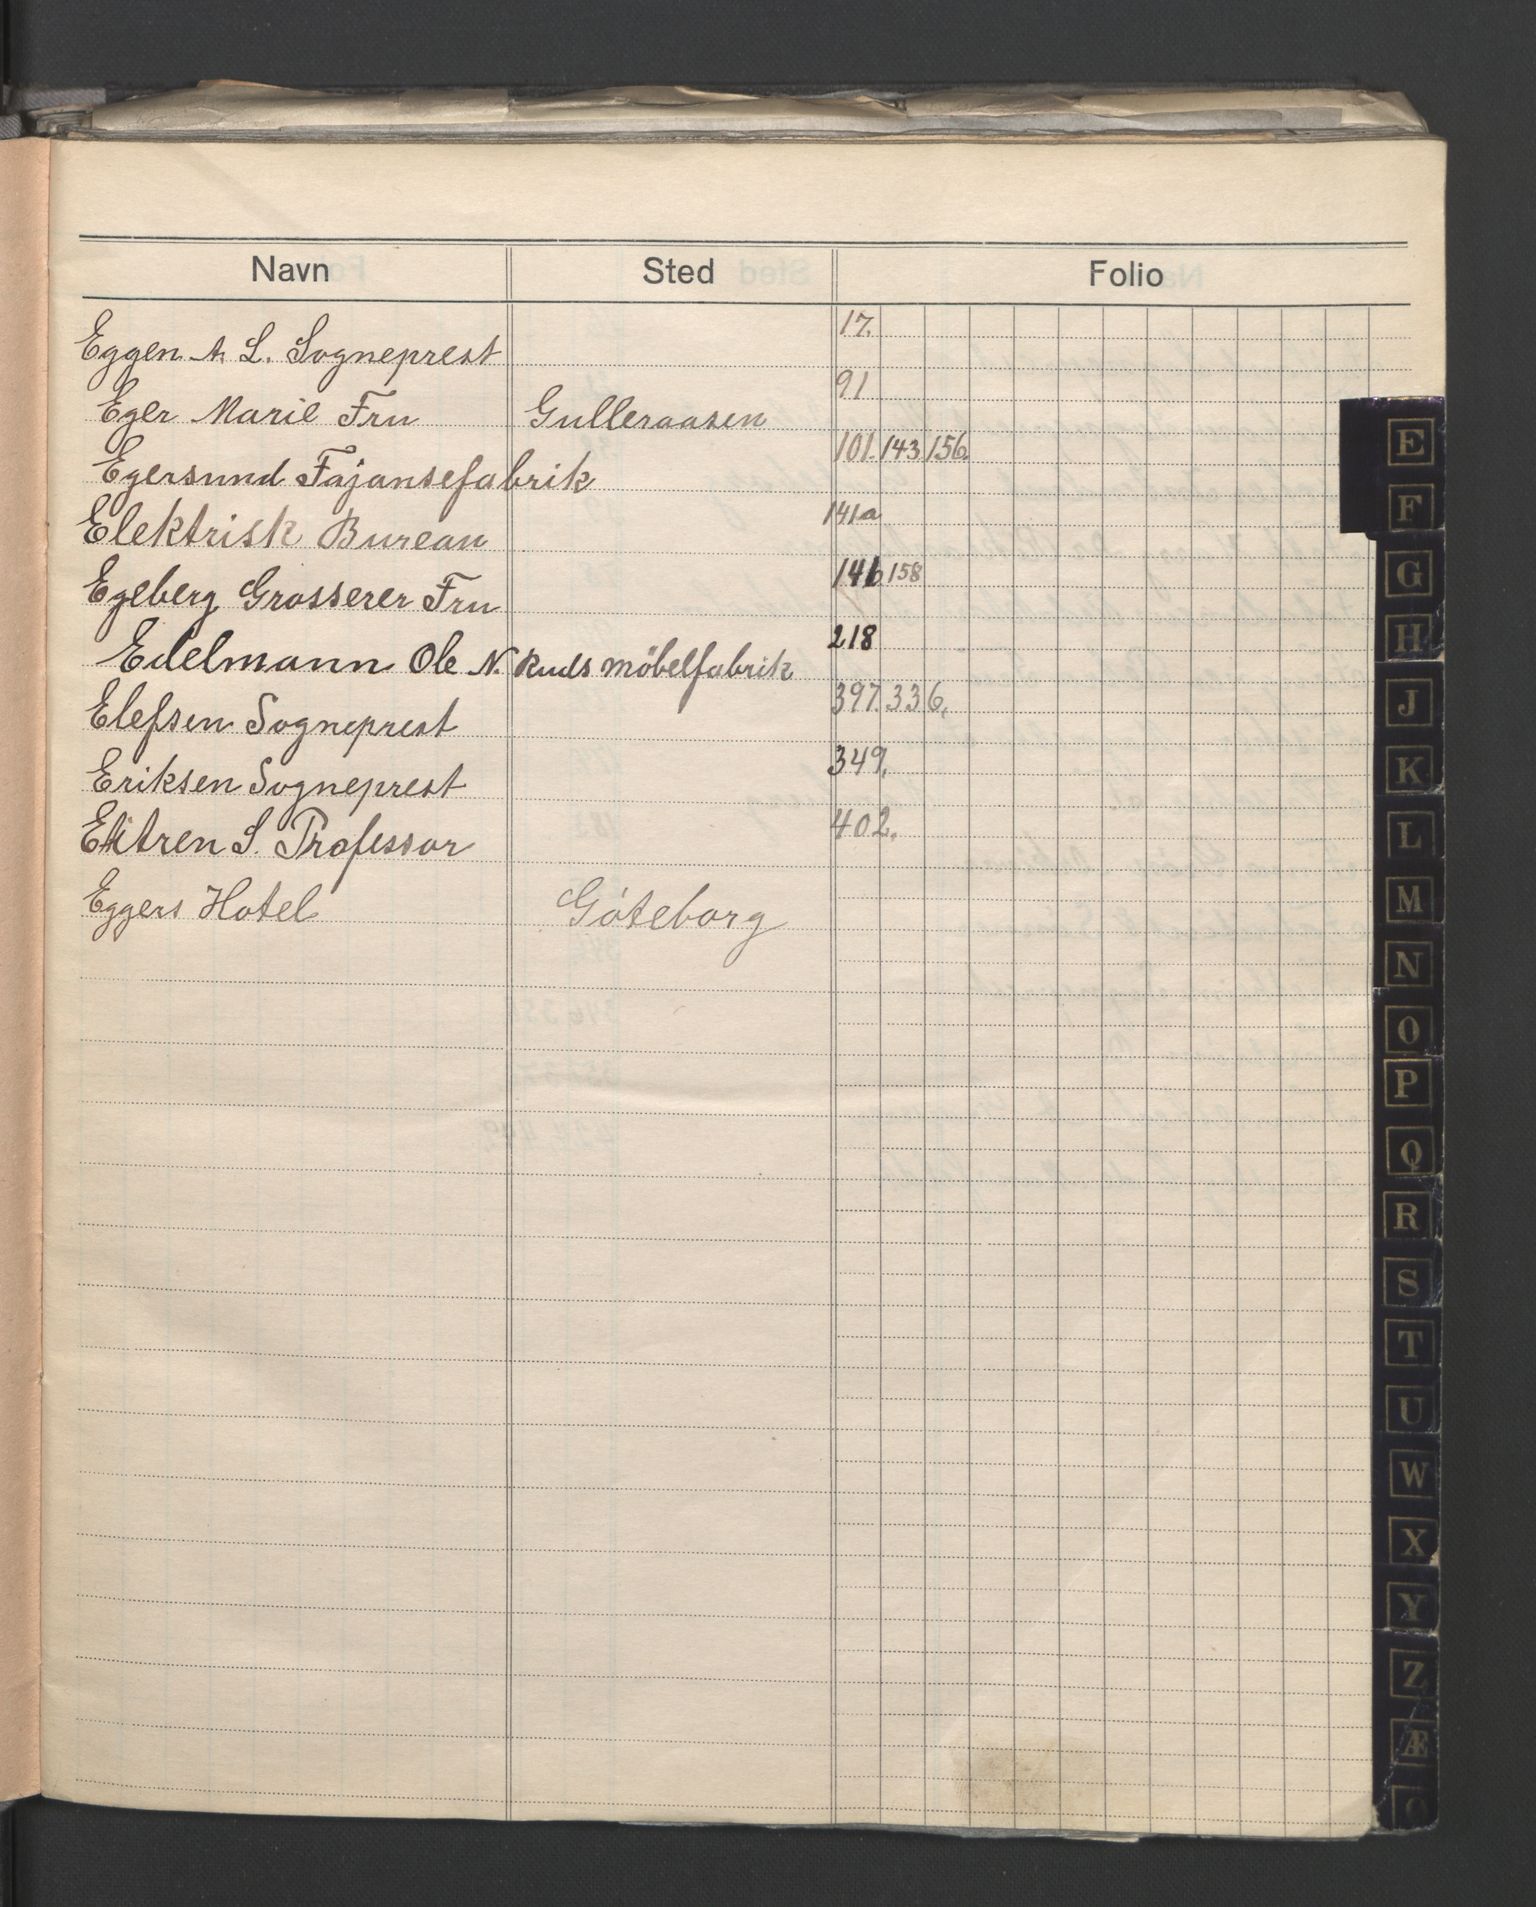 Navn Sted Folio
Eggen A. L. Sogneprest 17.
Eger Marie Fru Gulleraasen 91
Egersund Fajansefabrik 101. 143 156
Elektrisk Bureau 141a
Egeberg Grosserer Fru 146 158
Edelmann Ole N. Ruds möbelfabrik 218
Elefsen Sogneprest 397. 336.
Eriksen Sogneprest 349.
Eitrem S. Professor 402.
Eggers Hotel Göteborg
E
F
G
H
J
K
L
M
N
O
P
Q
R
S
T
U
W
X
Y
Z
Æ